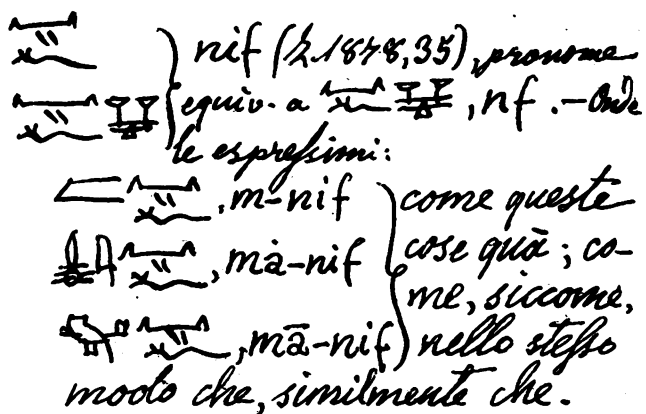 nif (Z.1878,35), pronome
equiv. a , nf. — Onde
le espressioni:
, m-nif come queste
, mȧ-nif cose quà; co-
me, siccome,
, mā-nif nello stesso
modo che, similmente che.